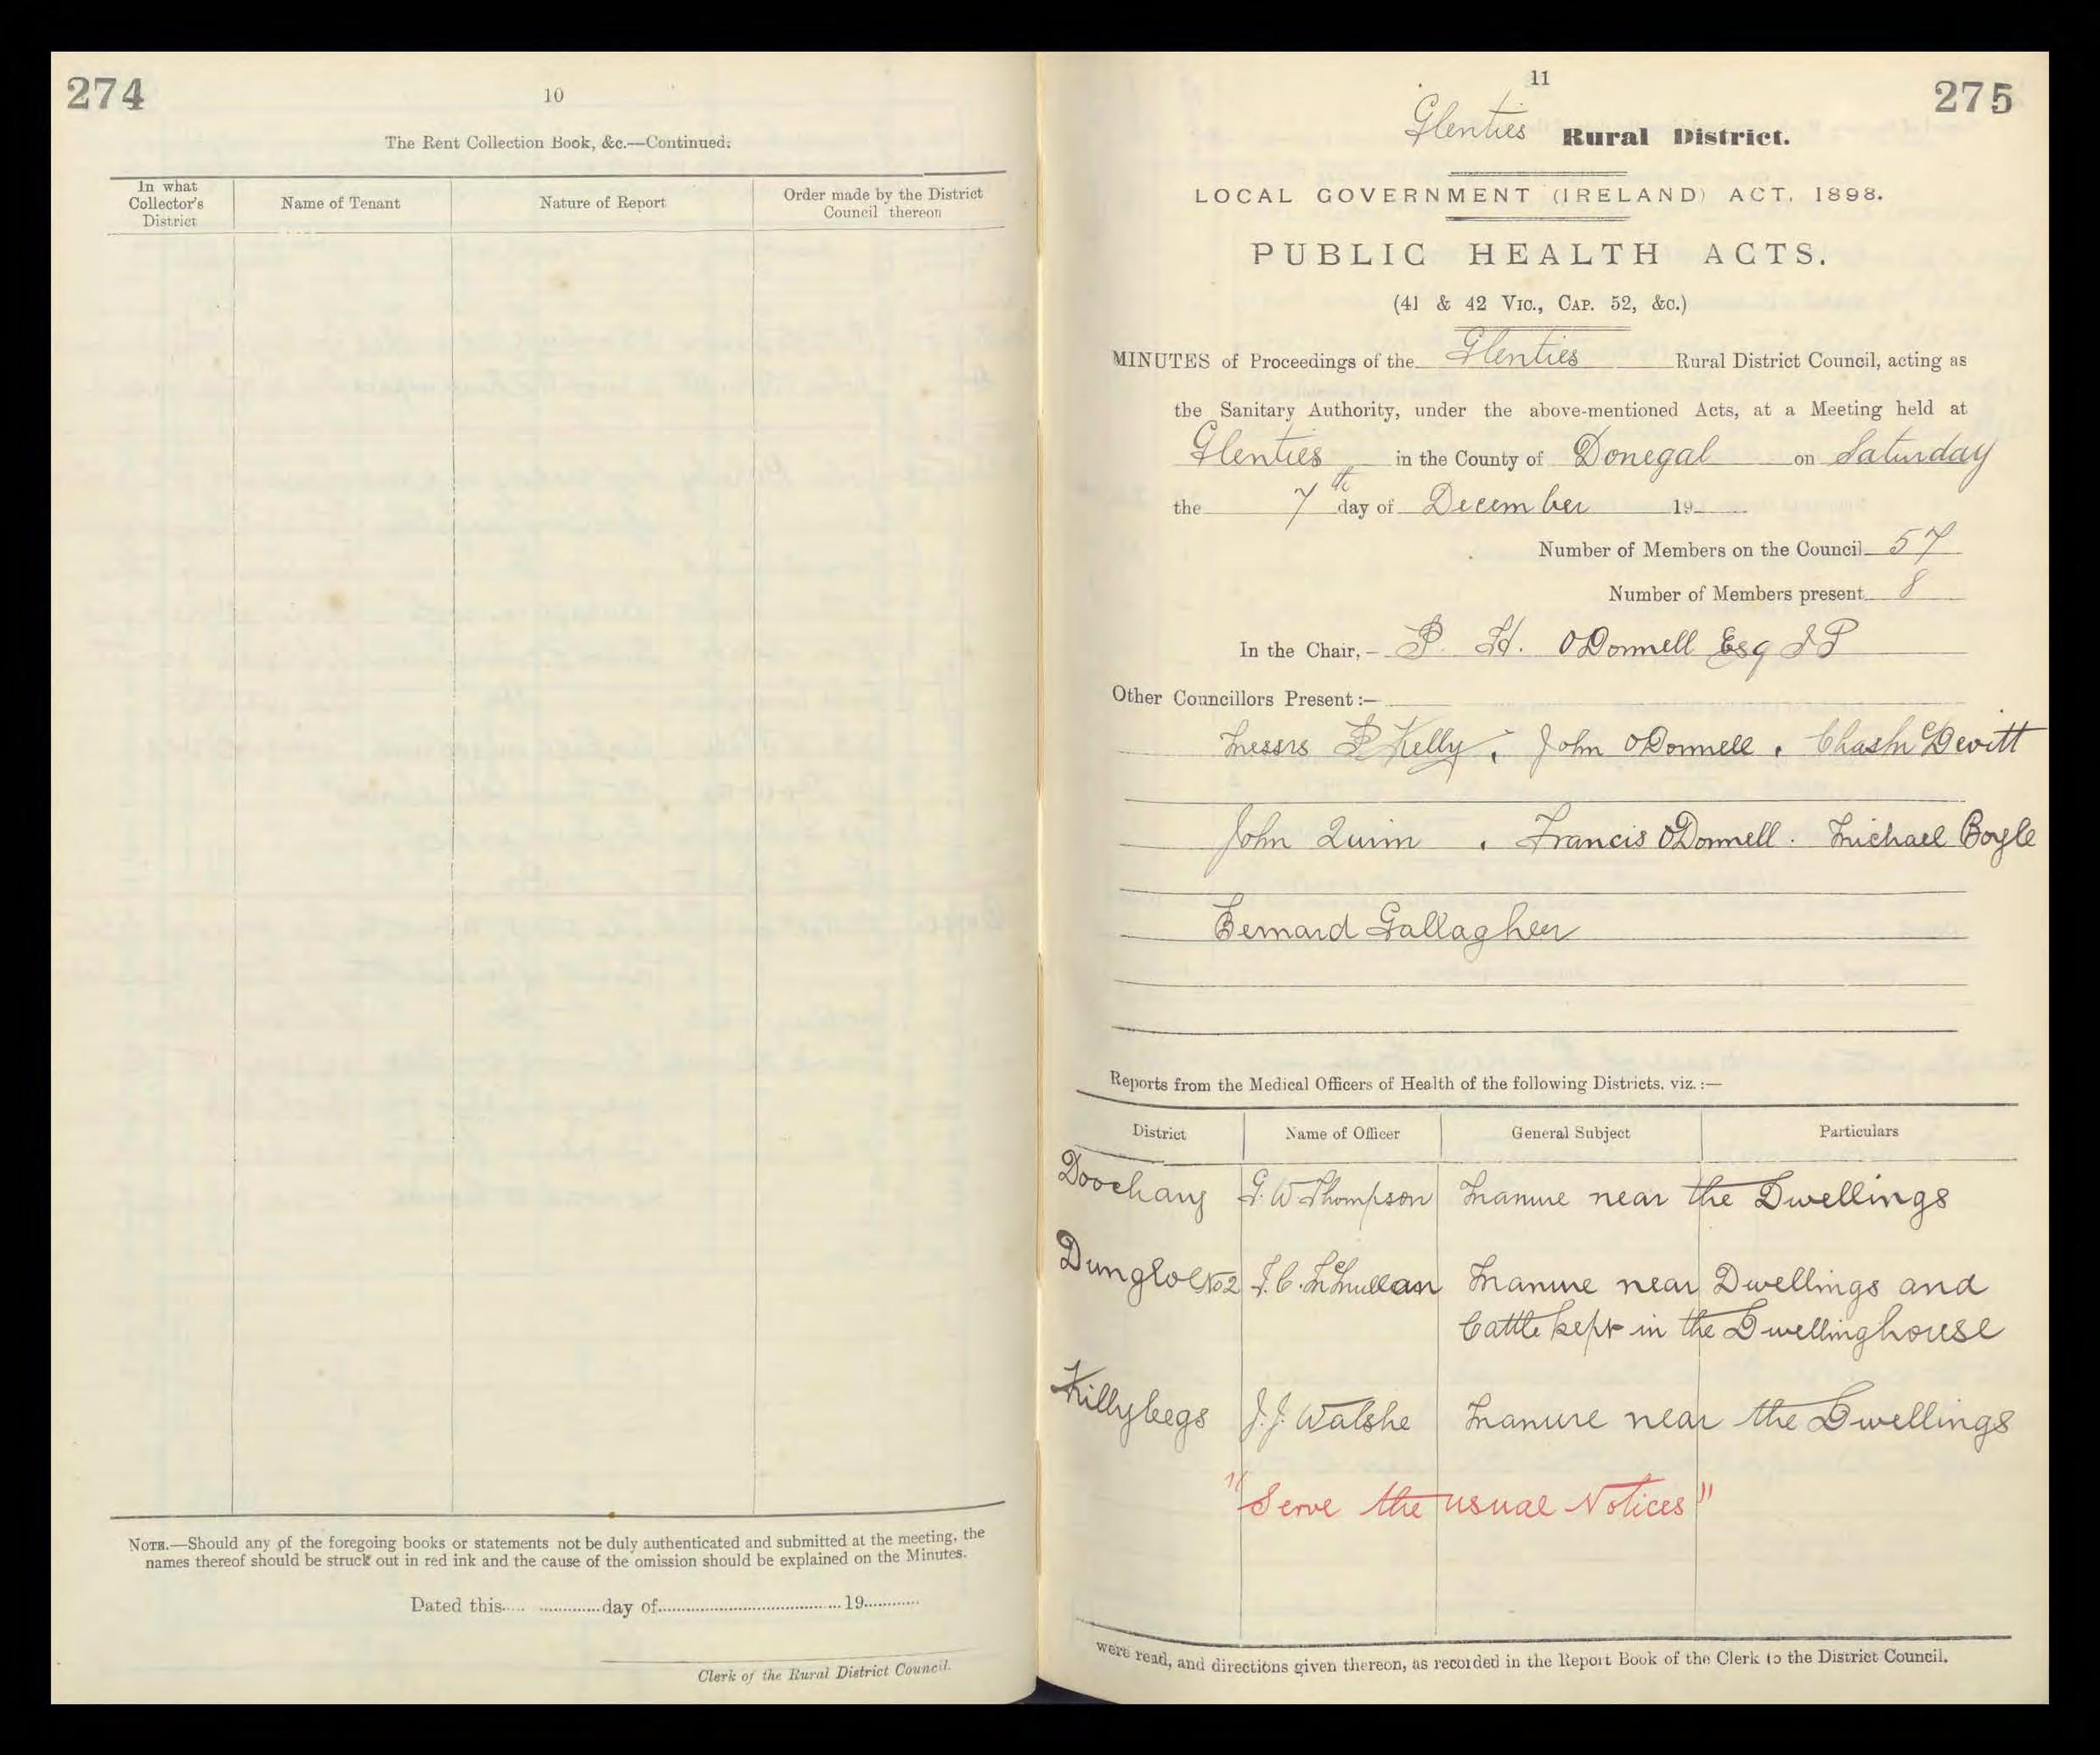 274
10
The Rent Collection Book, &c.—Continued.
In what Collector's District
Name of Tenant
Nature of Report
Order made by the District Council thereon
NOTE.—Should any of the foregoing books or statements not be duly authenticated and submitted at the meeting, the
names thereof should be struck out in red ink and the cause of the omission should be explained on the Minutes.
Dated this............day of............19............
Clerk of the Rural District Council.
11
275
Glenties Rural District.
LOCAL GOVERNMENT (IRELAND) ACT, 1898.
PUBLIC HEALTH ACTS.
(41 & 42 VIC., CAP. 52, &c.)
MINUTES of Proceedings of the Glenties Rural District Council, acting as
the Sanitary Authority, under the above-mentioned Acts, at a Meeting held at
Glenties in the County of Donegal on Saturday
the 7th day of December 19
Number of Members on the Council 57
Number of Members present 8
In the Chair,— P. H. ODonnell Esq JP
Other Councillors Present :—
Messrs P Kelly, John ODonnell, Chas McDevitt
John Quinn, Francis ODonnell. Michael Boyle
Bernard Gallagher
Reports from the Medical Officers of Health of the following Districts, viz. :—
District Name of Officer General Subject Particulars
Doochary G. W Thompson Manure near the Dwellings
Dungloe No 2 J. C. McMullan Manure near Dwellings and
Cattle kept in the Dwellinghouse
Killybegs J. J. Walshe Manure near the Dwellings
"Serve the usual Notices"
were read, and directions given thereon, as recorded in the Report Book of the Clerk to the District Council.